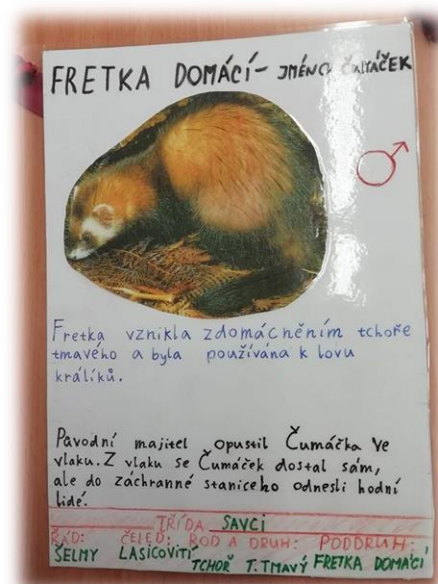 FRETKA DOMÁCÍ - JMÉNO ČUMÁČEK
Fretka vznikla zdomácněním tchoře
tmavého a byla používána k lovu
králíků.
Původní majitel opustil Čumáčka ve
vlaku. Z vlaku se Čumáček dostal sám,
ale do záchranné staniceho odnesli hodní
lidé.
TŘÍDA SAVCI
ŘÁD: ČELEĎ: ROD A DRUH: PODDRUH:
ŠELMY LASICOVITÍ TCHOŘ T.TMAVÝ FRETKA DOMÁCÍ